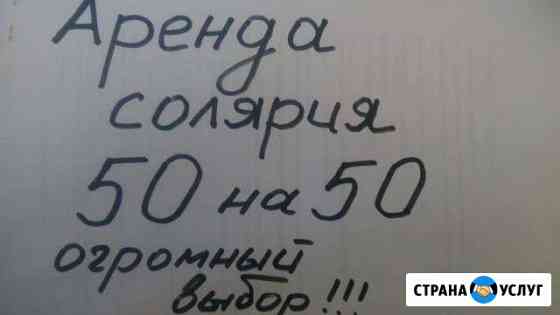 Аренда
солярия
50 на 50
огромный
выбор!!!
СТРАНА УСЛУГ